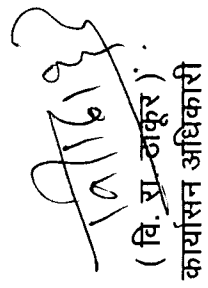 ( वि. रा. ठाकूर )
कार्यासन अधिकारी